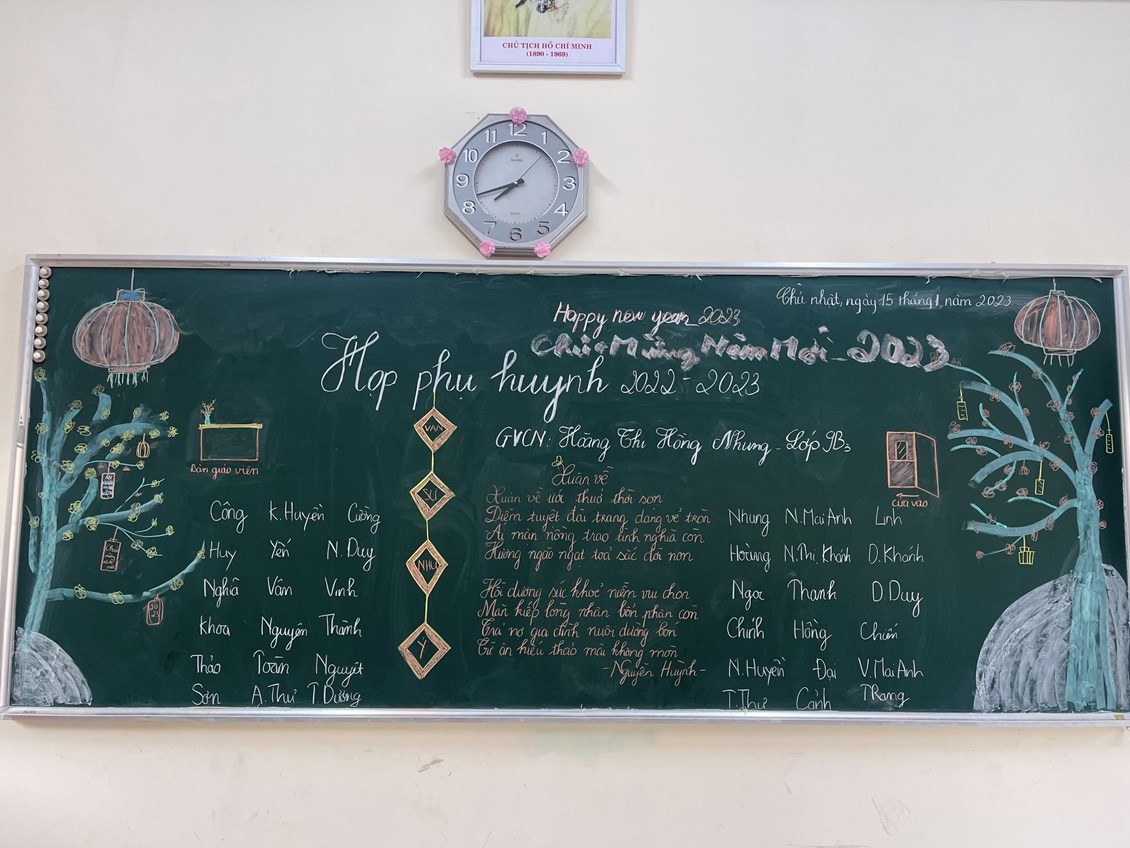 CHỦ TỊCH HỒ CHÍ MINH
(1890 - 1969)
11 12 1
10 2
9 3
8 4
7 6 5
Chủ nhật, ngày 15 tháng 1, năm 2023
Happy new year 2023
Chúc Mừng Năm Mới - 2023
Họp phụ huynh 2022 - 2023
GVCN: Hoàng Thị Hồng Nhung - Lớp 9B3
VẠN
SỰ
NHƯ
Ý
Bàn giáo viên
Cửa vào
Công K.Huyền Cường
Huy Yến N.Duy
Nghĩa Vân Vinh
Khoa Nguyên Thành
Thảo Toàn Nguyệt
Sơn A.Thư T.Dương
Xuân về
Xuân về ước thuở thời son
Điểm tuyết đài trang dáng vẻ tròn
Ái mặn nồng trao tình nghĩa còn
Hương ngào ngạt toả sắc đời non
Hồi dương sức khoẻ niềm vui chọn
Mãn kiếp lòng nhân bổn phận còn
Trả nợ gia đình nuôi dưỡng bốn
Từ ân hiếu thảo mãi không mòn
- Nguyễn Huỳnh -
Nhung N.Mai Anh Linh
Hoàng N.Thị Khánh D.Khánh
Ngọc Thanh D.Duy
Chính Hồng Chiến
N.Huyền Đại V.Mai Anh
T.Thư Cảnh TRang
2023